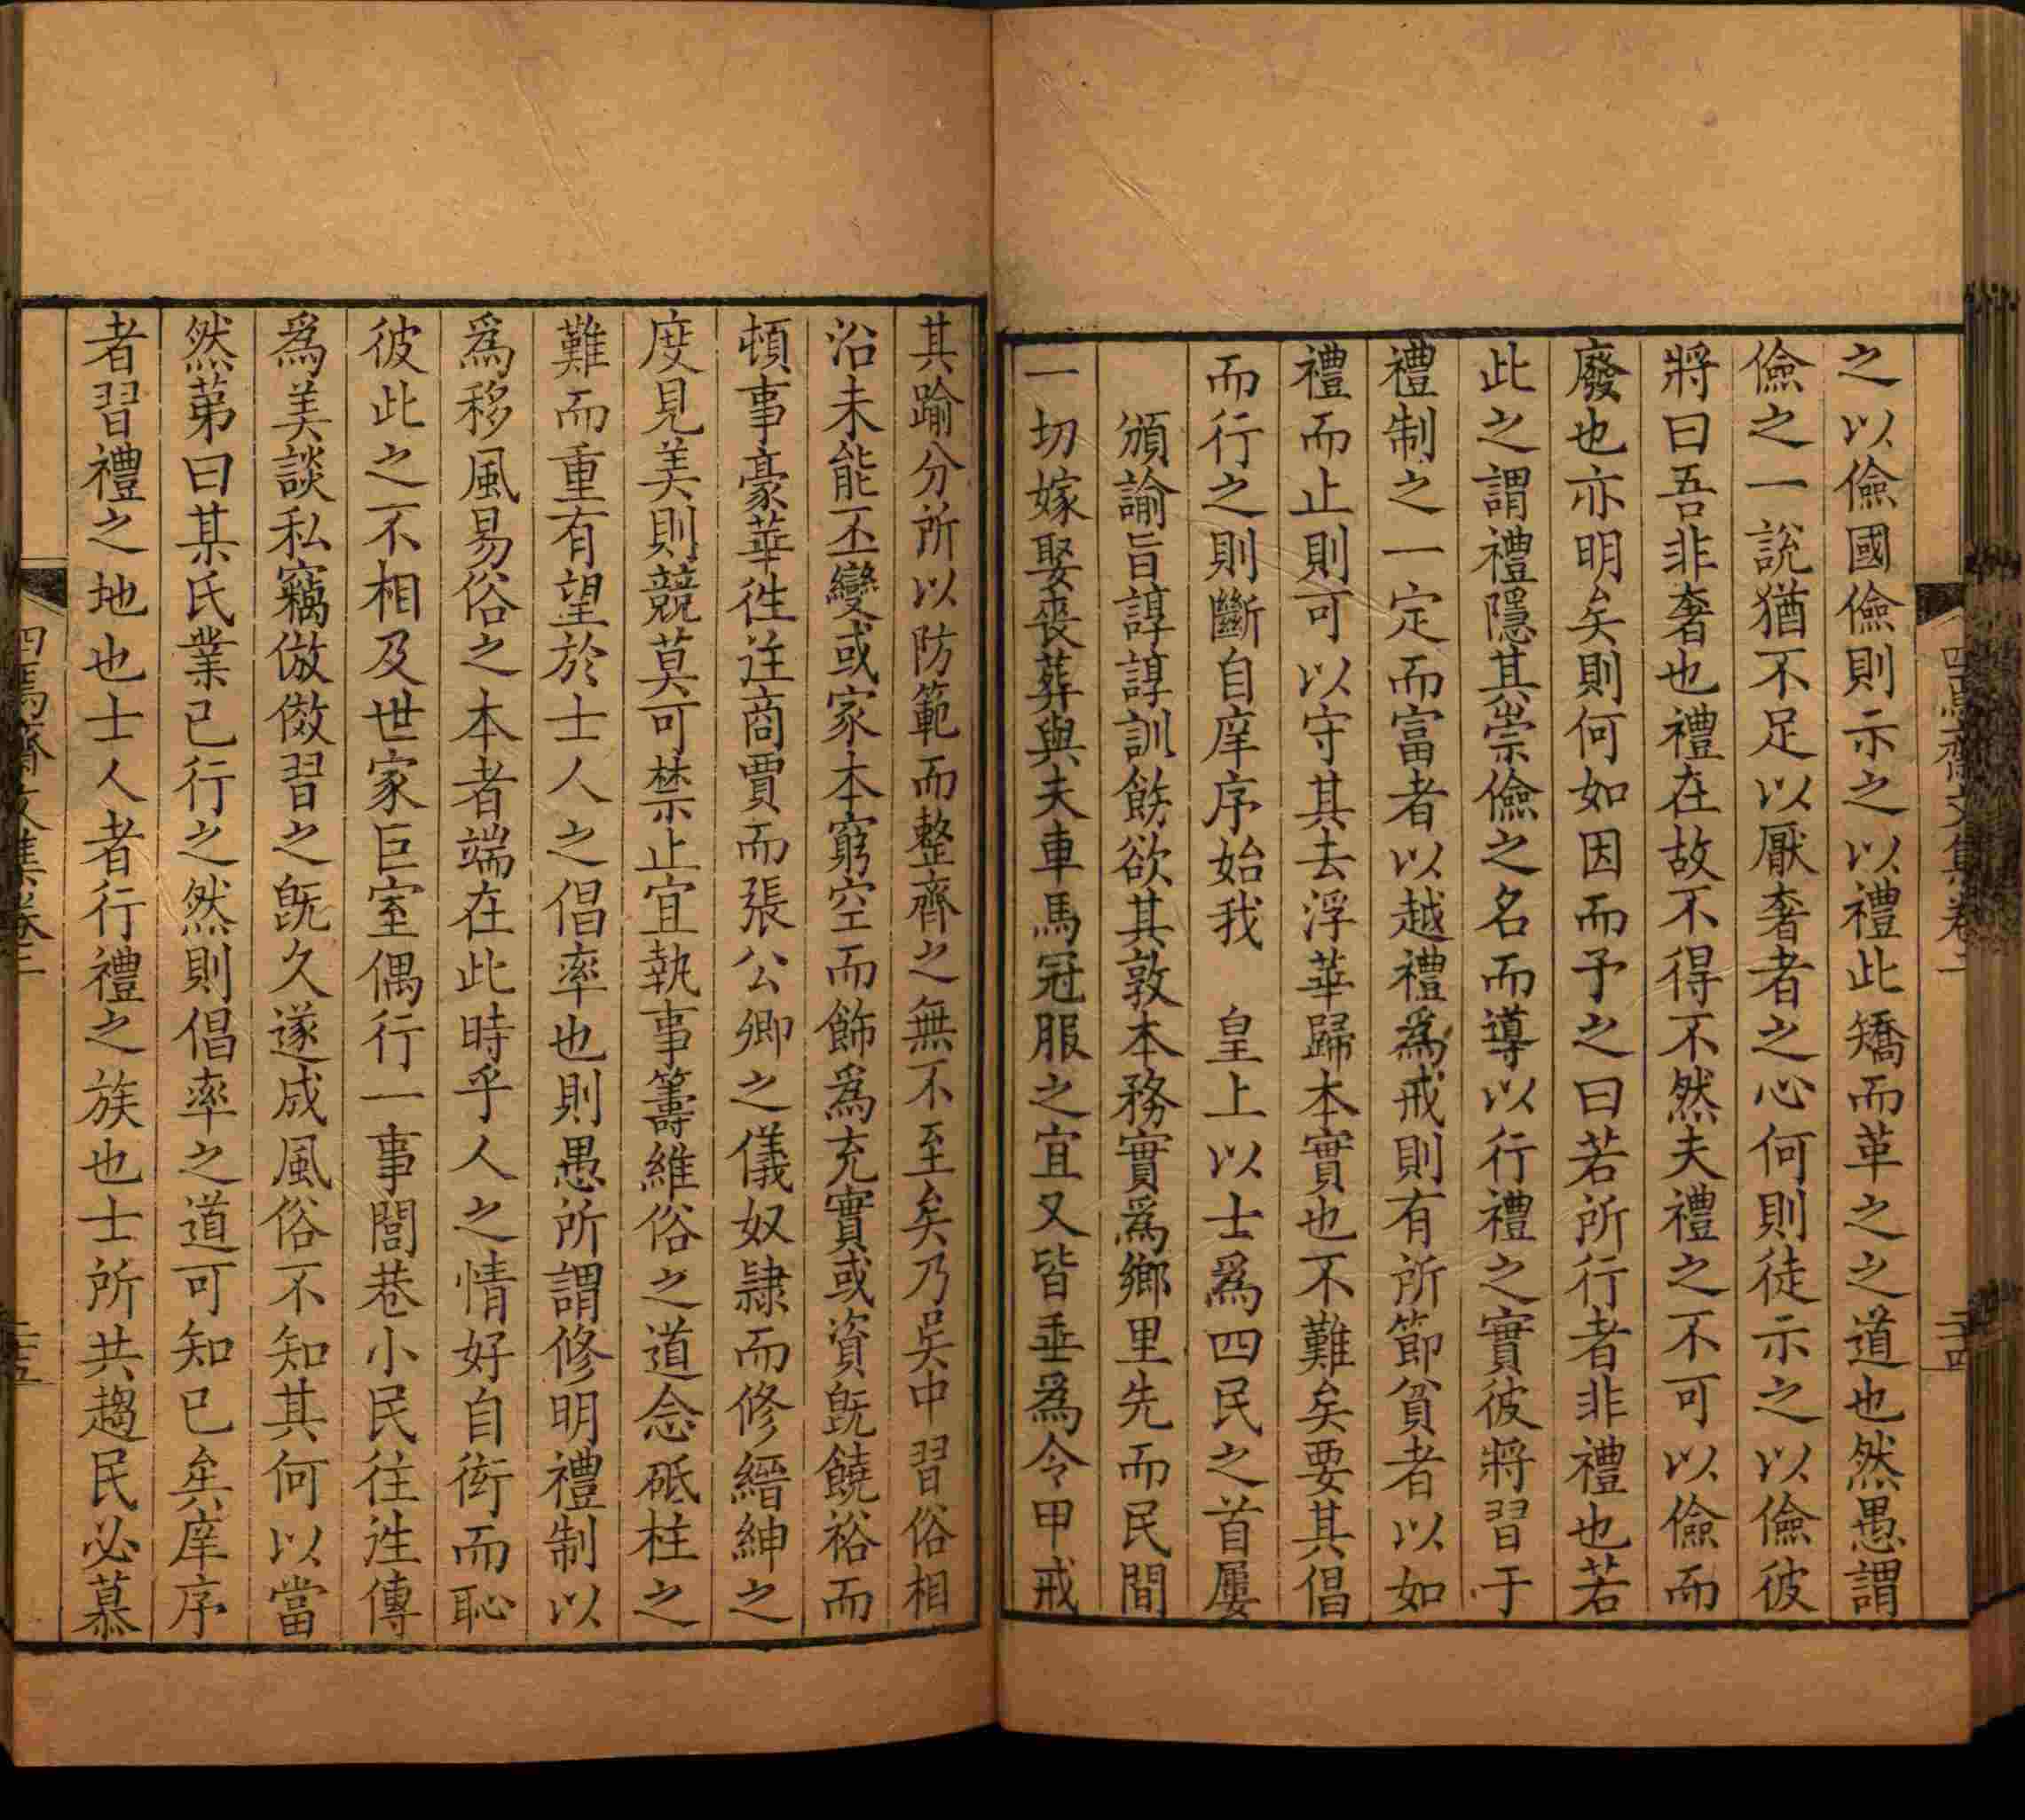 四焉齋文集卷二
二十四
之以儉國儉則示之以禮此矯而革之之道也然愚謂
儉之一說猶不足以厭奢者之心何則徒示之以儉彼
將曰吾非奢也禮在故不得不然夫禮之不可以儉而
廢也亦明矣則何如因而予之曰若所行者非禮也若
此之謂禮隱其崇儉之名而導以行禮之實彼將習于
禮制之一定而富者以越禮爲戒則有所節貧者以如
禮而止則可以守其去浮華歸本實也不難矣要其倡
而行之則斷自庠序始我 皇上以士爲四民之首屢
頒諭旨諄諄訓飭欲其敦本務實爲鄉里先而民間
一切嫁娶喪葬與夫車馬冠服之宜又皆垂爲令甲戒
其踰分所以防範而整齊之無不至矣乃吳中習俗相
沿未能丕變或家本窮空而飾爲充實或資旣饒裕而
頓事豪華徃徃商賈而張公卿之儀奴隷而修縉紳之
度見美則競莫可禁止宜執事籌維俗之道念砥柱之
難而重有望於士人之倡率也則愚所謂修明禮制以
爲移風易俗之本者端在此時乎人之情好自衒而恥
彼此之不相及世家巨室偶行一事閭巷小民往徃傳
爲美談私竊倣傚習之旣久遂成風俗不知其何以當
然苐曰某氏業已行之然則倡率之道可知已矣庠序
者習禮之地也士人者行禮之族也士所共趨民必慕
四焉齋文集卷二
二十五